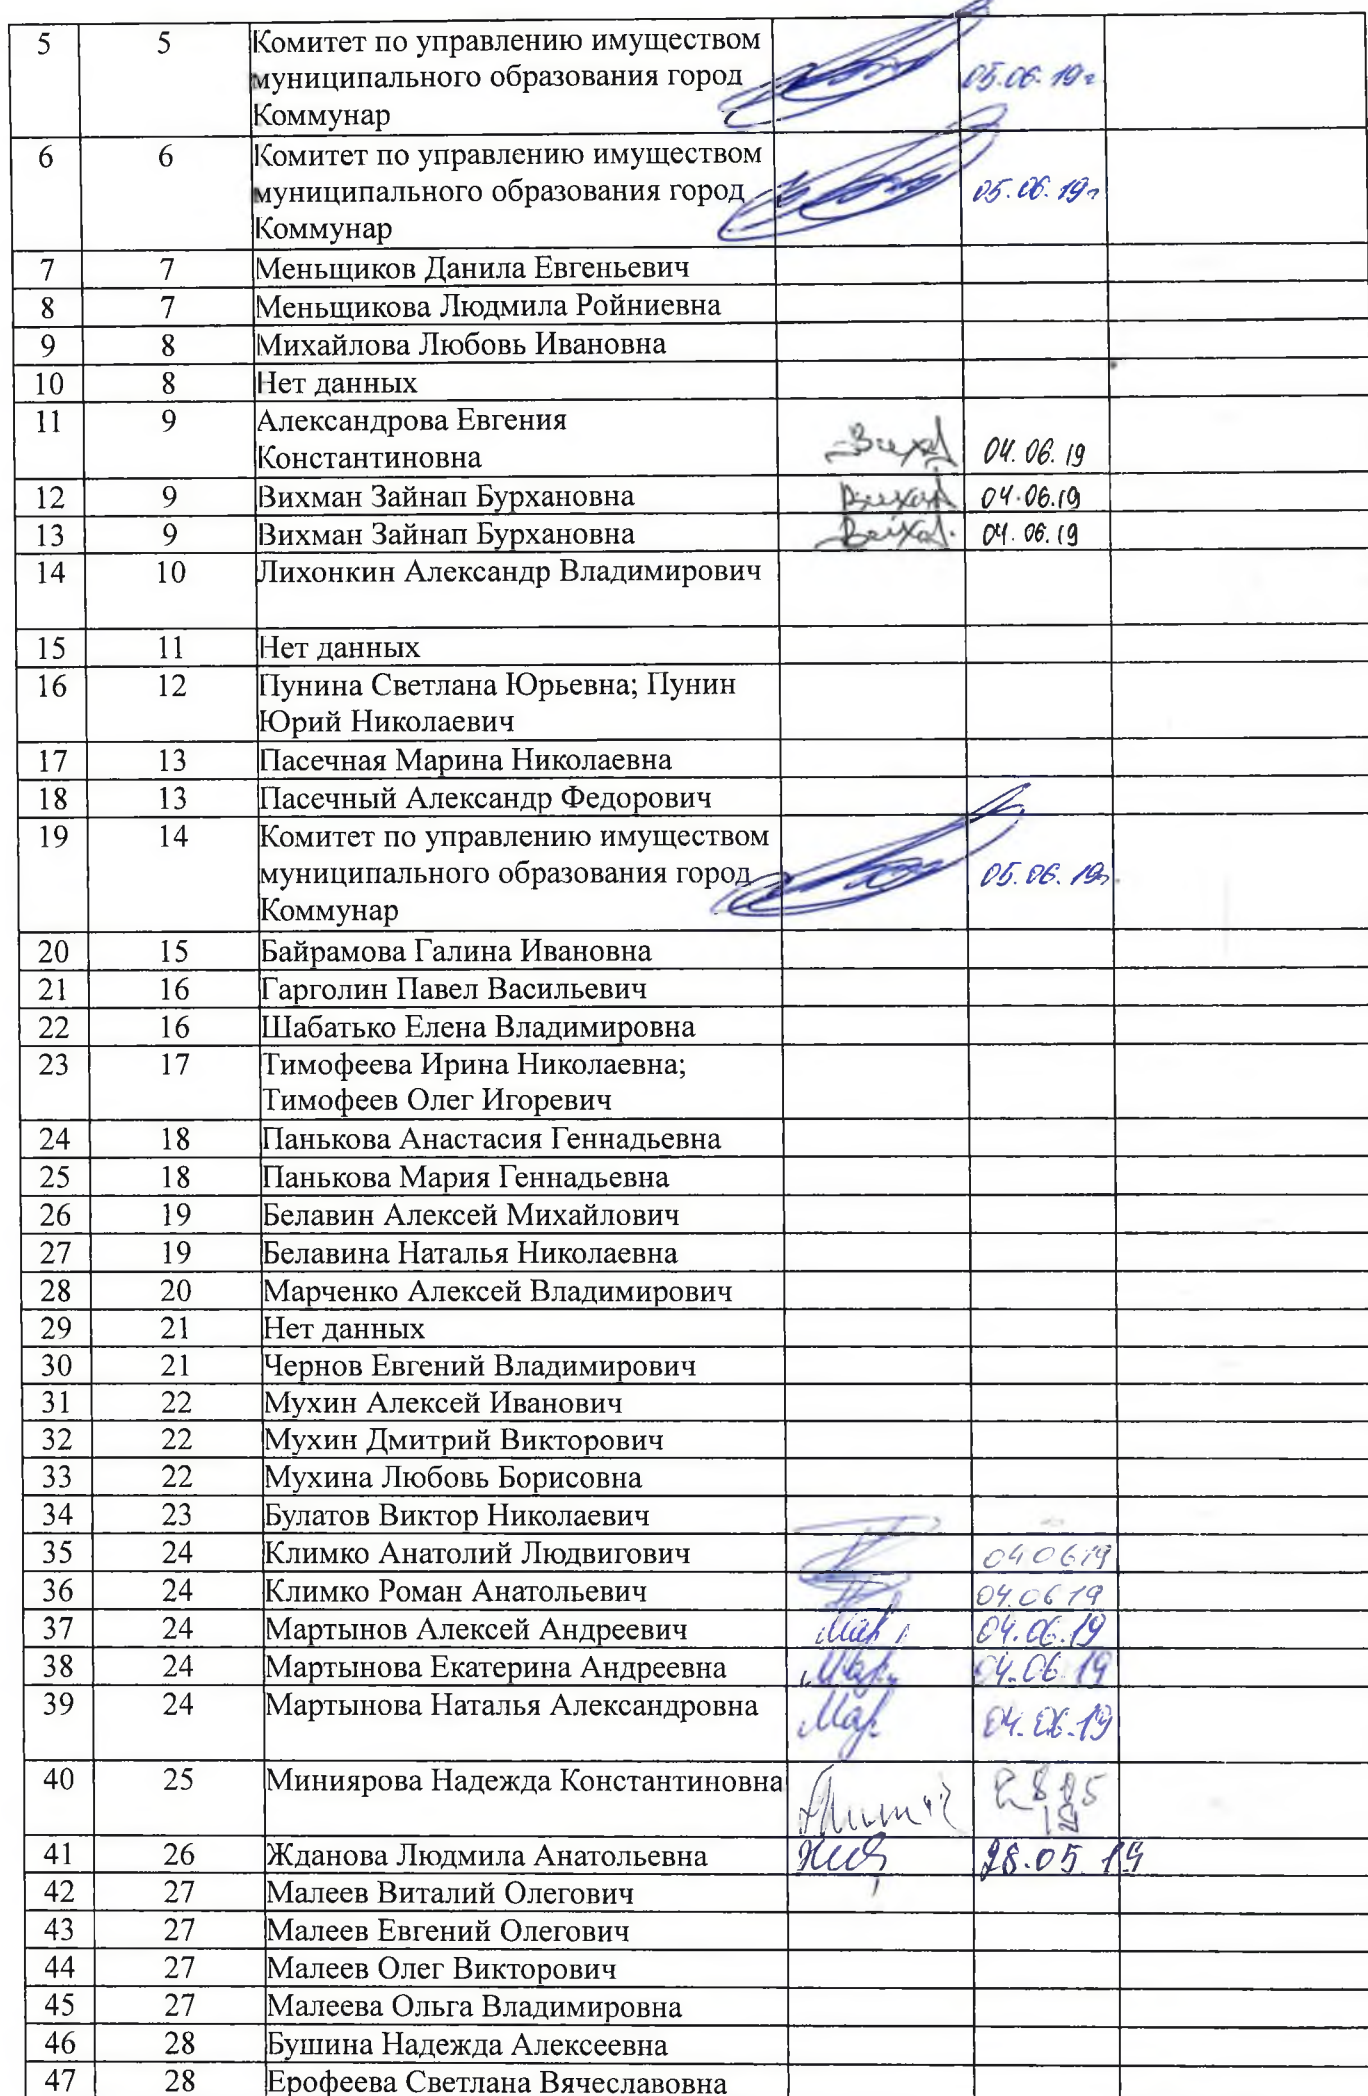 5 5 Комитет по управлению имуществом
муниципального образования город 05.06.19г
Коммунар
6 6 Комитет по управлению имуществом
муниципального образования город 05.06.19г
Коммунар
7 7 Меньщиков Данила Евгеньевич
8 7 Меньщикова Людмила Ройниевна
9 8 Михайлова Любовь Ивановна
10 8 Нет данных
11 9 Александрова Евгения
Константиновна 04.06.19
12 9 Вихман Зайнап Бурхановна 04.06.19
13 9 Вихман Зайнап Бурхановна 04.06.19
14 10 Лихонкин Александр Владимирович
15 11 Нет данных
16 12 Пунина Светлана Юрьевна; Пунин
Юрий Николаевич
17 13 Пасечная Марина Николаевна
18 13 Пасечный Александр Федорович
19 14 Комитет по управлению имуществом
муниципального образования город 05.06.19г.
Коммунар
20 15 Байрамова Галина Ивановна
21 16 Гарголин Павел Васильевич
22 16 Шабатько Елена Владимировна
23 17 Тимофеева Ирина Николаевна;
Тимофеев Олег Игоревич
24 18 Панькова Анастасия Геннадьевна
25 18 Панькова Мария Геннадьевна
26 19 Белавин Алексей Михайлович
27 19 Белавина Наталья Николаевна
28 20 Марченко Алексей Владимирович
29 21 Нет данных
30 21 Чернов Евгений Владимирович
31 22 Мухин Алексей Иванович
32 22 Мухин Дмитрий Викторович
33 22 Мухина Любовь Борисовна
34 23 Булатов Виктор Николаевич
35 24 Климко Анатолий Людвигович 04 06 19
36 24 Климко Роман Анатольевич 04.06 19
37 24 Мартынов Алексей Андреевич Мар 04.06.19
38 24 Мартынова Екатерина Андреевна Мар. 04.06 19
39 24 Мартынова Наталья Александровна Мар. 04.06.19
40 25 Миниярова Надежда Константиновна 28 05
19
41 26 Жданова Людмила Анатольевна 28.05 19
42 27 Малеев Виталий Олегович
43 27 Малеев Евгений Олегович
44 27 Малеев Олег Викторович
45 27 Малеева Ольга Владимировна
46 28 Бушина Надежда Алексеевна
47 28 Ерофеева Светлана Вячеславовна